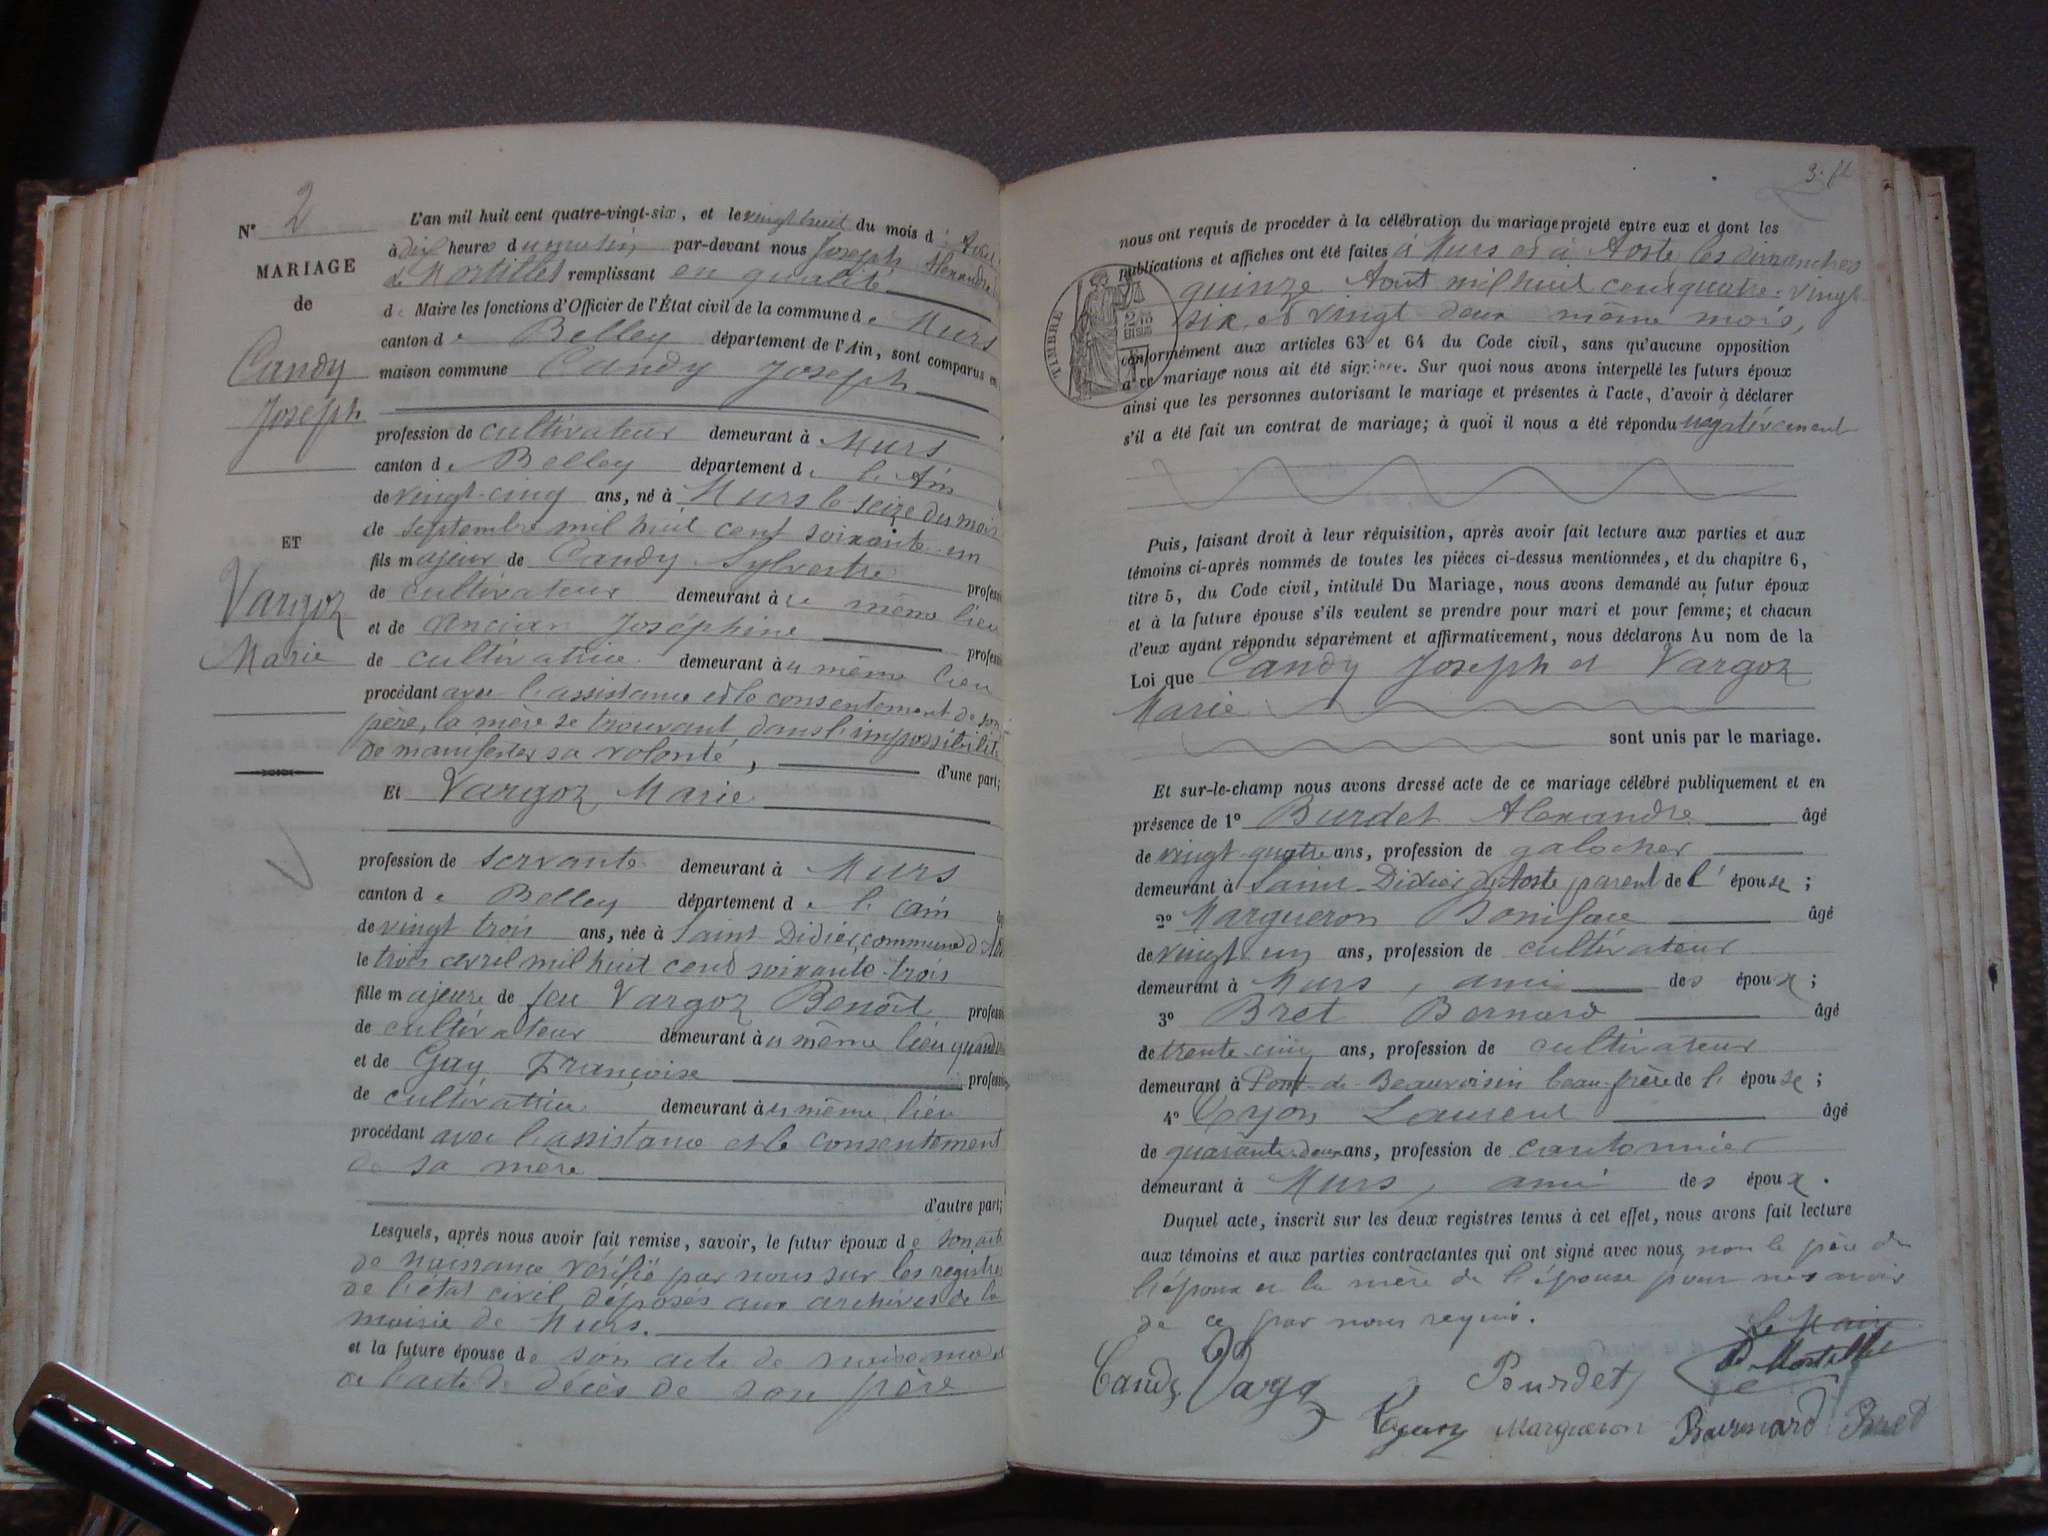 N° 2
MARIAGE
de
Candy
Joseph
ET
Vargoz
Marie
L'an mil huit cent quatre-vingt-six, et le vingt huit du mois d'Aout
à dix heures du matin, par-devant nous Joseph Alexandre
de Mortillet remplissant en qualité
de Maire les fonctions d'Officier de l'État civil de la commune de Murs
canton de Belley département de l'Ain, sont comparus en
maison commune Candy Joseph
profession de cultivateur demeurant à Murs
canton de Belley département de l'Ain
de vingt-cinq ans, né à Murs le seize du mois
de septembre mil huit cent soixante-un
fils majeur de Candy Sylvestre profess
de cultivateur demeurant à u même lieu
et de Ancian Joséphine profess
de cultivatrice demeurant à u même lieu
procédant avec l'assistance et le consentement de son
père, la mère se trouvant dans l'impossibilité
de manifester sa volonté, d'une part;
Et Vargoz Marie
profession de servante demeurant à Murs
canton de Belley département de l'Ain
de vingt trois ans, née à Saint-Didier, commune d'Aos
le trois avril mil huit cent soixante-trois
fille majeure de feu Vargoz Benoît profess
de cultivateur demeurant à u même lieu quand
et de Guy Françoise professi
de cultivatrice demeurant à u même lieu
procédant avec l'assistance et le consentement
de sa mère
d'autre part;
Lesquels, après nous avoir fait remise, savoir, le futur époux de son acte
de naissance vérifié par nous sur les registres
de l'état civil déposés aux archives de la
mairie de Murs.
et la future épouse de son acte de naissance et
de l'acte de décès de son père
nous ont requis de procéder à la célébration du mariage projeté entre eux et dont les
publications et affiches ont été faites à Murs et à Aoste les dimanches
quinze Aout mil huit cent quatre-vingt
six et vingt deux même mois,
TIMBRE
2/10
EN SUS
conformément aux articles 63 et 64 du Code civil, sans qu'aucune opposition
à ce mariage nous ait été signifiée. Sur quoi nous avons interpellé les futurs époux
ainsi que les personnes autorisant le mariage et présentes à l'acte, d'avoir à déclarer
s'il a été fait un contrat de mariage; à quoi il nous a été répondu négativement
Puis, faisant droit à leur réquisition, après avoir fait lecture aux parties et aux
témoins ci-après nommés de toutes les pièces ci-dessus mentionnées, et du chapitre 6,
titre 5, du Code civil, intitulé Du Mariage, nous avons demandé au futur époux
et à la future épouse s'ils veulent se prendre pour mari et pour femme; et chacun
d'eux ayant répondu séparément et affirmativement, nous déclarons Au nom de la
Loi que Candy Joseph et Vargoz
Marie
sont unis par le mariage.
Et sur-le-champ nous avons dressé acte de ce mariage célébré publiquement et en
présence de 1° Burdet Alexandre âgé
de vingt-quatre ans, profession de galocher
demeurant à Saint-Didier d'Aoste parent de l'épouse;
2° Margueron Boniface âgé
de vingt un ans, profession de cultivateur
demeurant à Murs, ami des époux;
3° Bret Bernard âgé
de trente cinq ans, profession de cultivateur
demeurant à Pont-de-Beauvoisin beau-frère de l'épouse;
4° Laurent âgé
de quarante-deux ans, profession de cantonnier
demeurant à Murs, ami des époux.
Duquel acte, inscrit sur les deux registres tenus à cet effet, nous avons fait lecture
aux témoins et aux parties contractantes qui ont signé avec nous, non le père de
l'époux et la mère de l'épouse pour ne savoir
de ce par nous requis.
Le Maire
Candy Vargoz Burdet D Mortillet
Margueron Bernard Bret